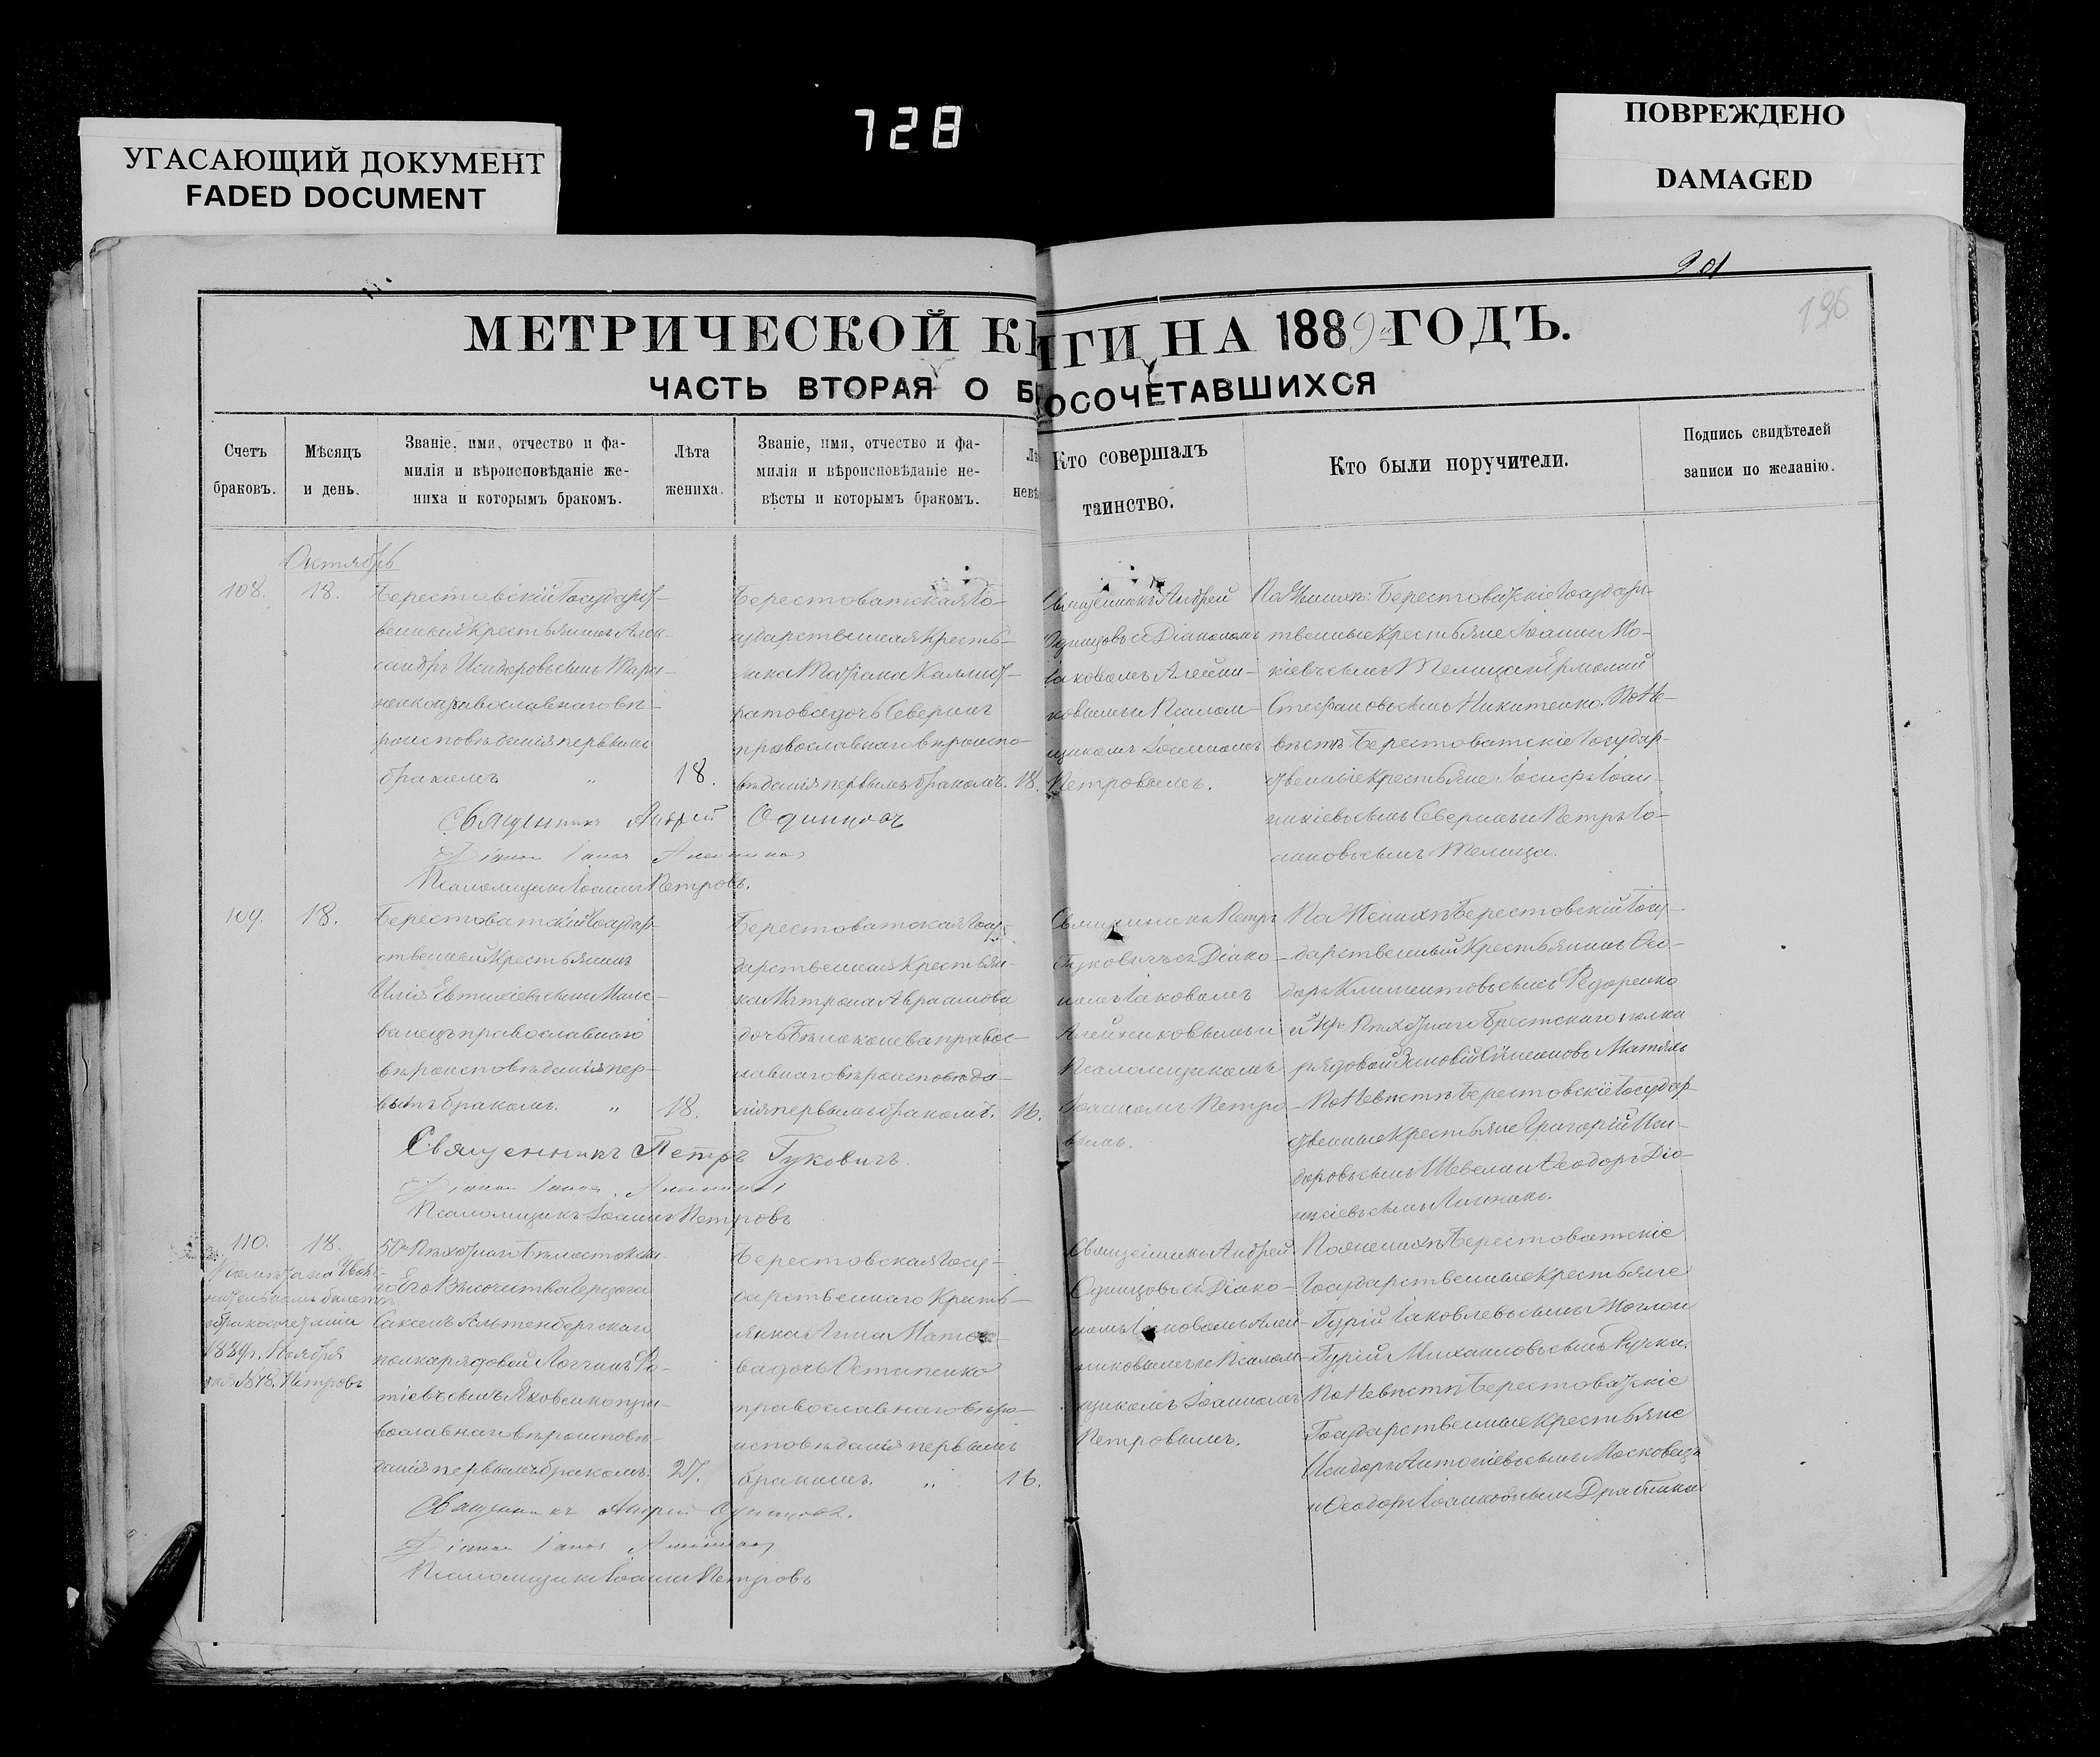 728
УГАСАЮЩИЙ ДОКУМЕНТ
FADED DOCUMENT
ПОВРЕЖДЕНО
DAMAGED
201
196
МЕТРИЧЕСКОЙ КНИГИ НА 1889 ГОДЪ.
ЧАСТЬ ВТОРАЯ О БРАКОСОЧЕТАВШИХСЯ
Счетъ
браковъ.
Мѣсяцъ
и день.
Званіе, имя, отчество и фа-
милія и вѣроисповѣданіе же-
ниха и которымъ бракомъ.
Лѣта
жениха.
Званіе, имя, отчество и фа-
милія и вѣроисповѣданіе не-
вѣсты и которымъ бракомъ.
Лѣ
невѣ
Кто совершалъ
таинство.
Кто были поручители.
Подпись свидѣтелей
записи по желанію.
Октябрь
108.
18.
Берестовскій Государст-
венный Крестьянинъ Алек-
сандръ Исидоровъ сынъ
православнаго вѣ-
роисповѣданія первымъ
бракомъ „
18.
Берестоватская Го-
сударственная Кресть-
янка Татіана Калист-
ратова дочь Северинъ
православнаго вѣроиспо-
вѣданія первымъ бракомъ.
18.
Священникъ Андрей
Одинцовъ съ Діакономъ
Іаковомъ Алейни-
ковымъ и Псалом-
щикомъ Іоанномъ
Петровымъ.
По Женихѣ: Берестоватскіе Государ-
ственные Крестьяне Іоаннъ Мо-
кіевъ сынъ Телица и Ермолай
Стефановъ сынъ Никитенко. По Не-
вѣстѣ Берестоватскіе Государ-
ственные Крестьяне Іосифъ Іоан-
никіевъ сынъ Северинъ и Петръ Іо-
анновъ сынъ Телица.
Священникъ Андрей Одинцовъ
Діаконъ Іаковъ Алейниковъ
Псаломщикъ Іоаннъ Петровъ.
109.
18.
Берестоватскій Государ-
ственный Крестьянинъ
Илія Евтихіевъ сынъ
православнаго
вѣроисповѣданія пер-
вымъ бракомъ. „
18.
Берестоватская Госу-
дарственная Крестьян-
ка Матрона Авраамова
дочь Бѣлоконева правос-
лавнаго вѣроисповѣда-
нія первымъ бракомъ.
16.
Священникъ Петръ
Гуковичъ съ Діако-
номъ Іаковомъ
Алейниковымъ и
Псаломщикомъ
Іоанномъ Петро-
вымъ.
По Женихѣ Берестовскій Госу-
дарственный Крестьянинъ Ѳео-
доръ Климентовъ сынъ Федоренко
и Пѣхотнаго Брестскаго полка
рядовой Зиновій Симеоновъ
По Невѣстѣ Берестовскіе Государ-
ственные Крестьяне Григорій Иси-
доровъ сынъ и Ѳеодоръ Діо-
нисіевъ сынъ
Священникъ Петръ Гуковичъ.
Діаконъ Іаковъ Алейниковъ
Псаломщикъ Іоаннъ Петровъ
110.
18.
1889 г. Ноября
Петровъ
50 Пѣхотнаго Бѣлостокска-
го Его Высочества Герцога
Саксенъ Альтенбергскаго
полка рядовой Логгинъ Фо-
тіевъ сынъ Яковенко пра-
вославнаго вѣроисповѣ-
данія первымъ бракомъ.
27.
Берестовская Госу-
дарственнаго Кресть-
янка Анна
дочь Остапенко
православнаго вѣро-
исповѣданія первымъ
бракомъ. „
16.
Священникъ Андрей
Одинцовъ съ Діако-
номъ Іаковомъ Алей-
никовымъ и Псалом-
щикомъ Іоанномъ
Петровымъ.
По женихѣ Берестоватскіе
Государственные Крестьяне
Гурій Іаковлевъ сынъ
Гурій Михаиловъ сынъ
По Невѣстѣ Берестоватскіе
Государственные Крестьяне
Исидоръ Антоніевъ сынъ Московецъ
и Ѳеодоръ Іоанновъ сынъ
Священникъ Андрей Одинцовъ.
Діаконъ Іаковъ Алейниковъ
Псаломщикъ Іоаннъ Петровъ